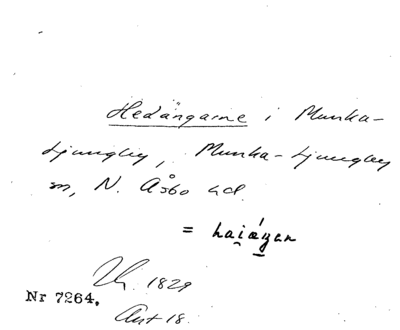 Hedängarne i Munka-
Ljungby, Munka-Ljungby
sn, N. Åsbo hd.
= haiæŋan
1829
Nr 7264,
Akt 18.